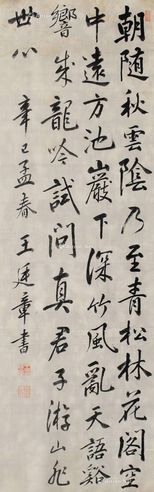 朝隨秋雲陰乃至青松林花閣空
中遠方池巖下深竹風亂天語谿
響成龍吟試問真君子游山非
世心 辛巳孟春王廷章書